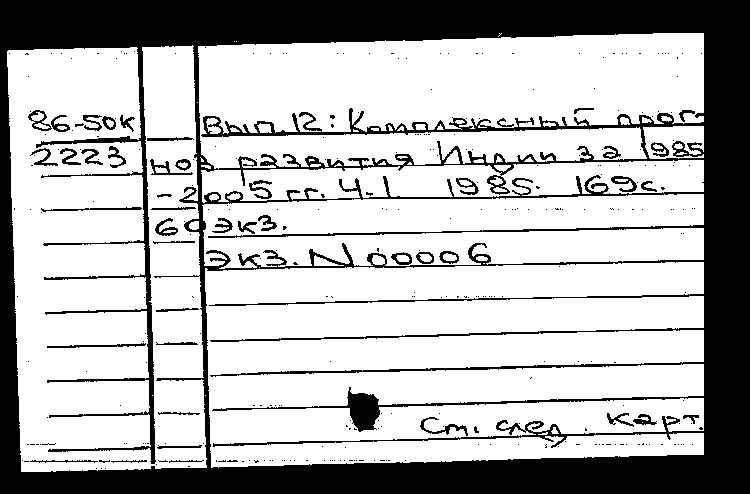 86-50к Вып.12: Комплексный прог-
2223 ноз развития Индии за 1985
-2005 гг. Ч.1 1985. 169с.
60 экз.
Экз. N 00006
См. след. карт.